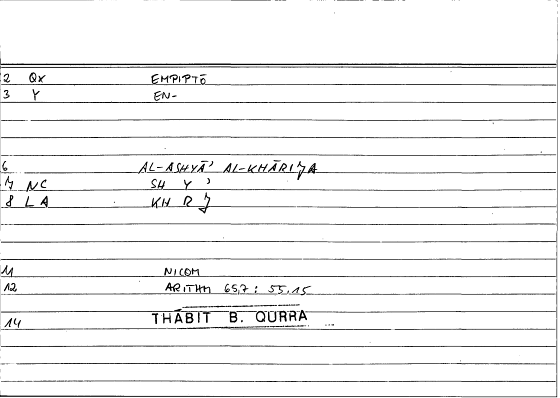 2 Qx EMPIPTŌ
3 Y EN-
6 AL-ASHYĀ' AL-KHĀRIJA
7 NC SH Y '
8 LA KH R J
11 NICOM
12 ARITHM 65,7 : 55,15
14 THĀBIT B. QURRA